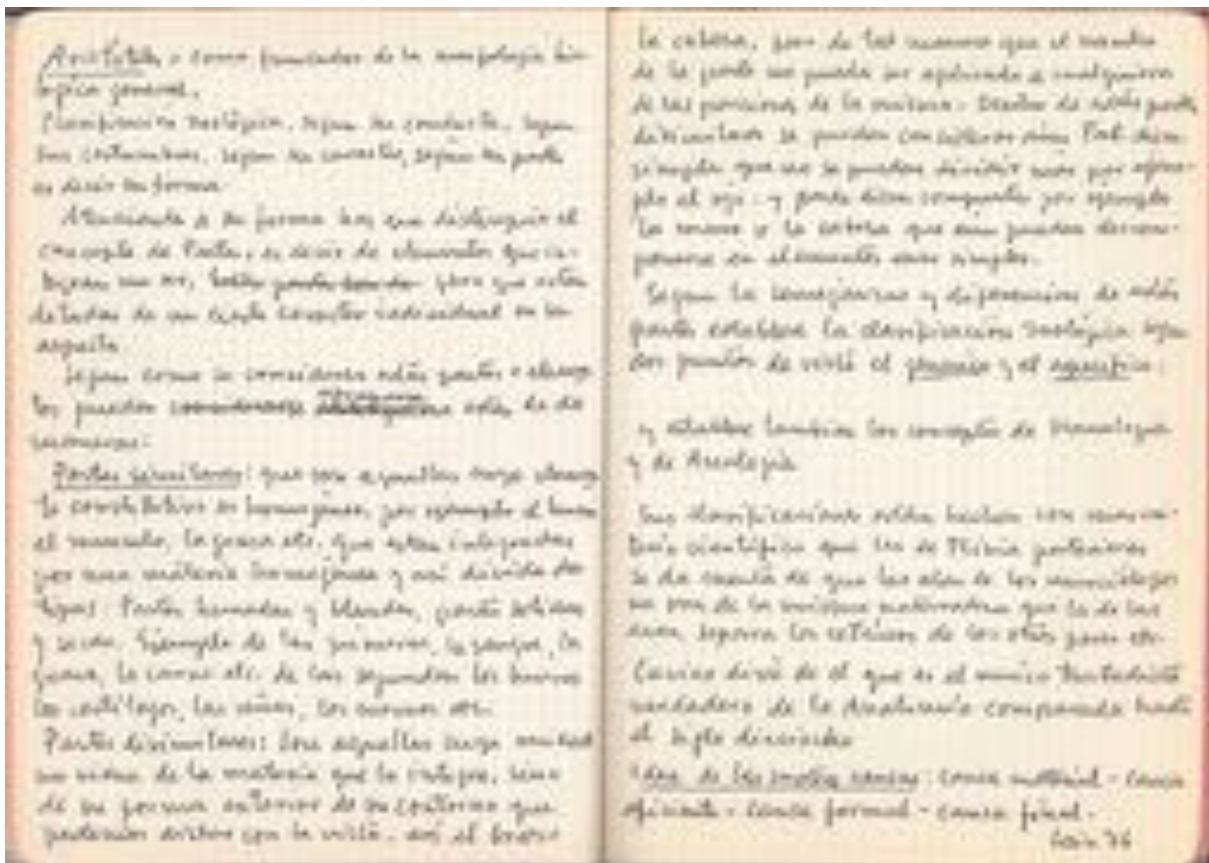 Aristóteles como fundador de la morfología bio-
lógica general.
Clasificación zoológica, según su conducta, según
sus costumbres, según su carácter, según sus partes
es decir su forma.
Atendiendo a su forma hay que distinguir el
concepto de Parte, es decir de elementos que in-
tegran un ser, pero que están
dotadas de un cierto carácter individual en su
aspecto
Según como se consideren estas partes o elemen-
tos pueden
maneras:
Partes similares: que son aquellas cuyo elemen-
to constitutivo es homogéneo, por ejemplo el hueso
el músculo, la grasa etc. que están integradas
por una materia homogénea y así divide dos
tipos: Partes húmedas y blandas, partes sólidas
y secas. Ejemplo de las primeras, la sangre, la
grasa, la carne etc. de las segundas los huesos
los cartílagos, las uñas, los cuernos etc.
Partes disimilares: Son aquellas cuya unidad
no viene de la materia que la integra, sino
de su forma exterior de su contorno que
podemos con la vista. así el brazo
la cabeza, son de tal manera que el nombre
de la parte no puede ser aplicado a cualquiera
de las porciones de la misma. Dentro de estas partes
disimilares se pueden considerar
simple que no se pueden dividir más por ejem-
plo el ojo. y compuesta por ejemplo
la mano o la cabeza que aún pueden descom-
ponerse en elementos más simples.
Según la semejanza y diferencias de estas
partes establece la clasificación zoológica según
dos puntos de vista el genérico y el específico:
y establece también los conceptos de Homología
y de Analogía
Sus clasificaciones están hechas con
científico que las de Plinio posteriores
se da cuenta de que las alas de los murciélagos
no son de la misma naturaleza que la de las
aves, separa los cetáceos de los otros peces etc.
dirá de él que es el único tratadista
verdadero de la Anatomía comparada hasta
el siglo dieciocho
Idea de las cuatro causas: causa material - causa
eficiente - causa formal - causa final.
76